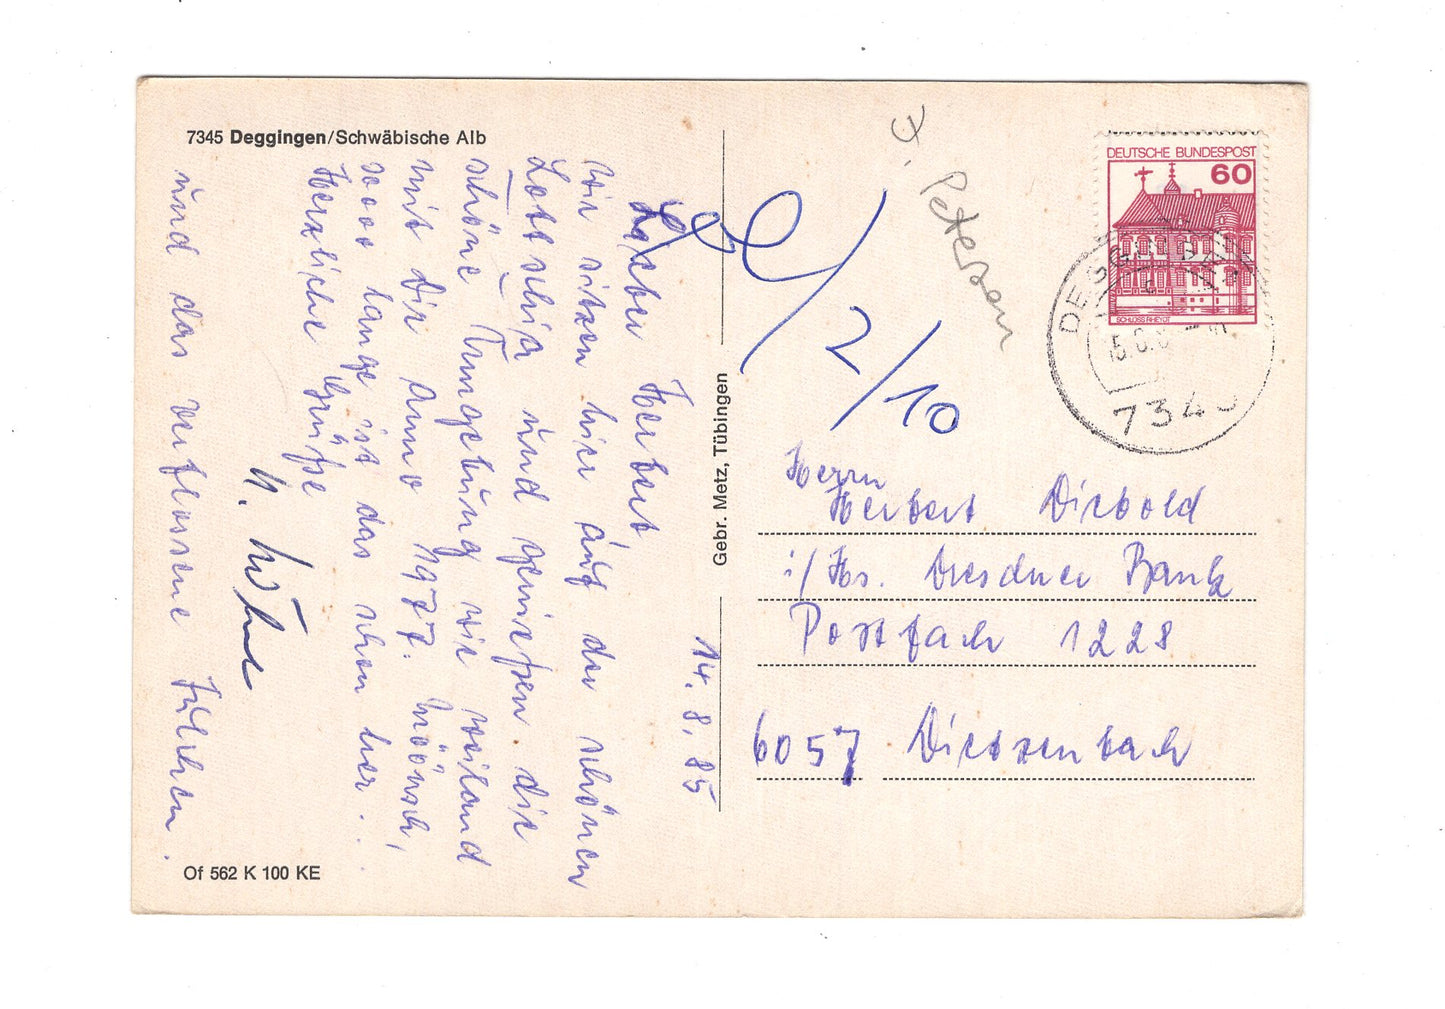 7345 Deggingen/Schwäbische Alb
14. 8. 85
Lieber Herbert
wir sitzen hier auf der schönen
und genießen die
schöne Umgebung wie weiland
mit Dir anno 1977.
soooo lange ist das schon her...
Herzliche Grüße
und das verflossene
Of 562 K 100 KE
Gebr. Metz, Tübingen
2/10
Petersen
DEUTSCHE BUNDESPOST
60
SCHLOSS RHEYDT
Herrn
Herbert Diebold
i/Hs. Dresdner Bank
Postfach 1228
6057 Dietzenbach